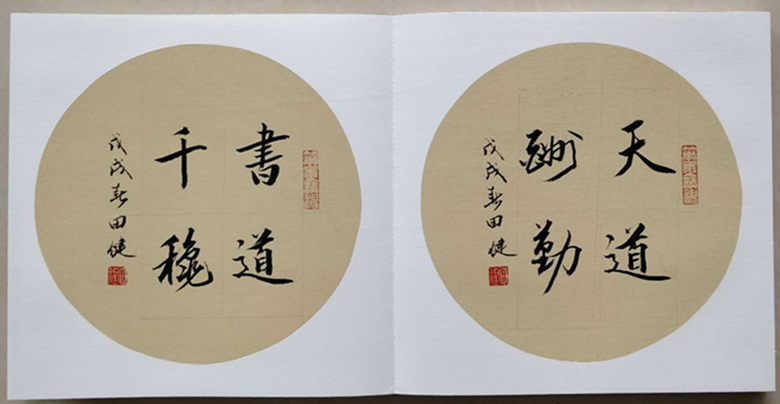 天道
酬勤
戊戌春田健
書道
千穐
戊戌春田健